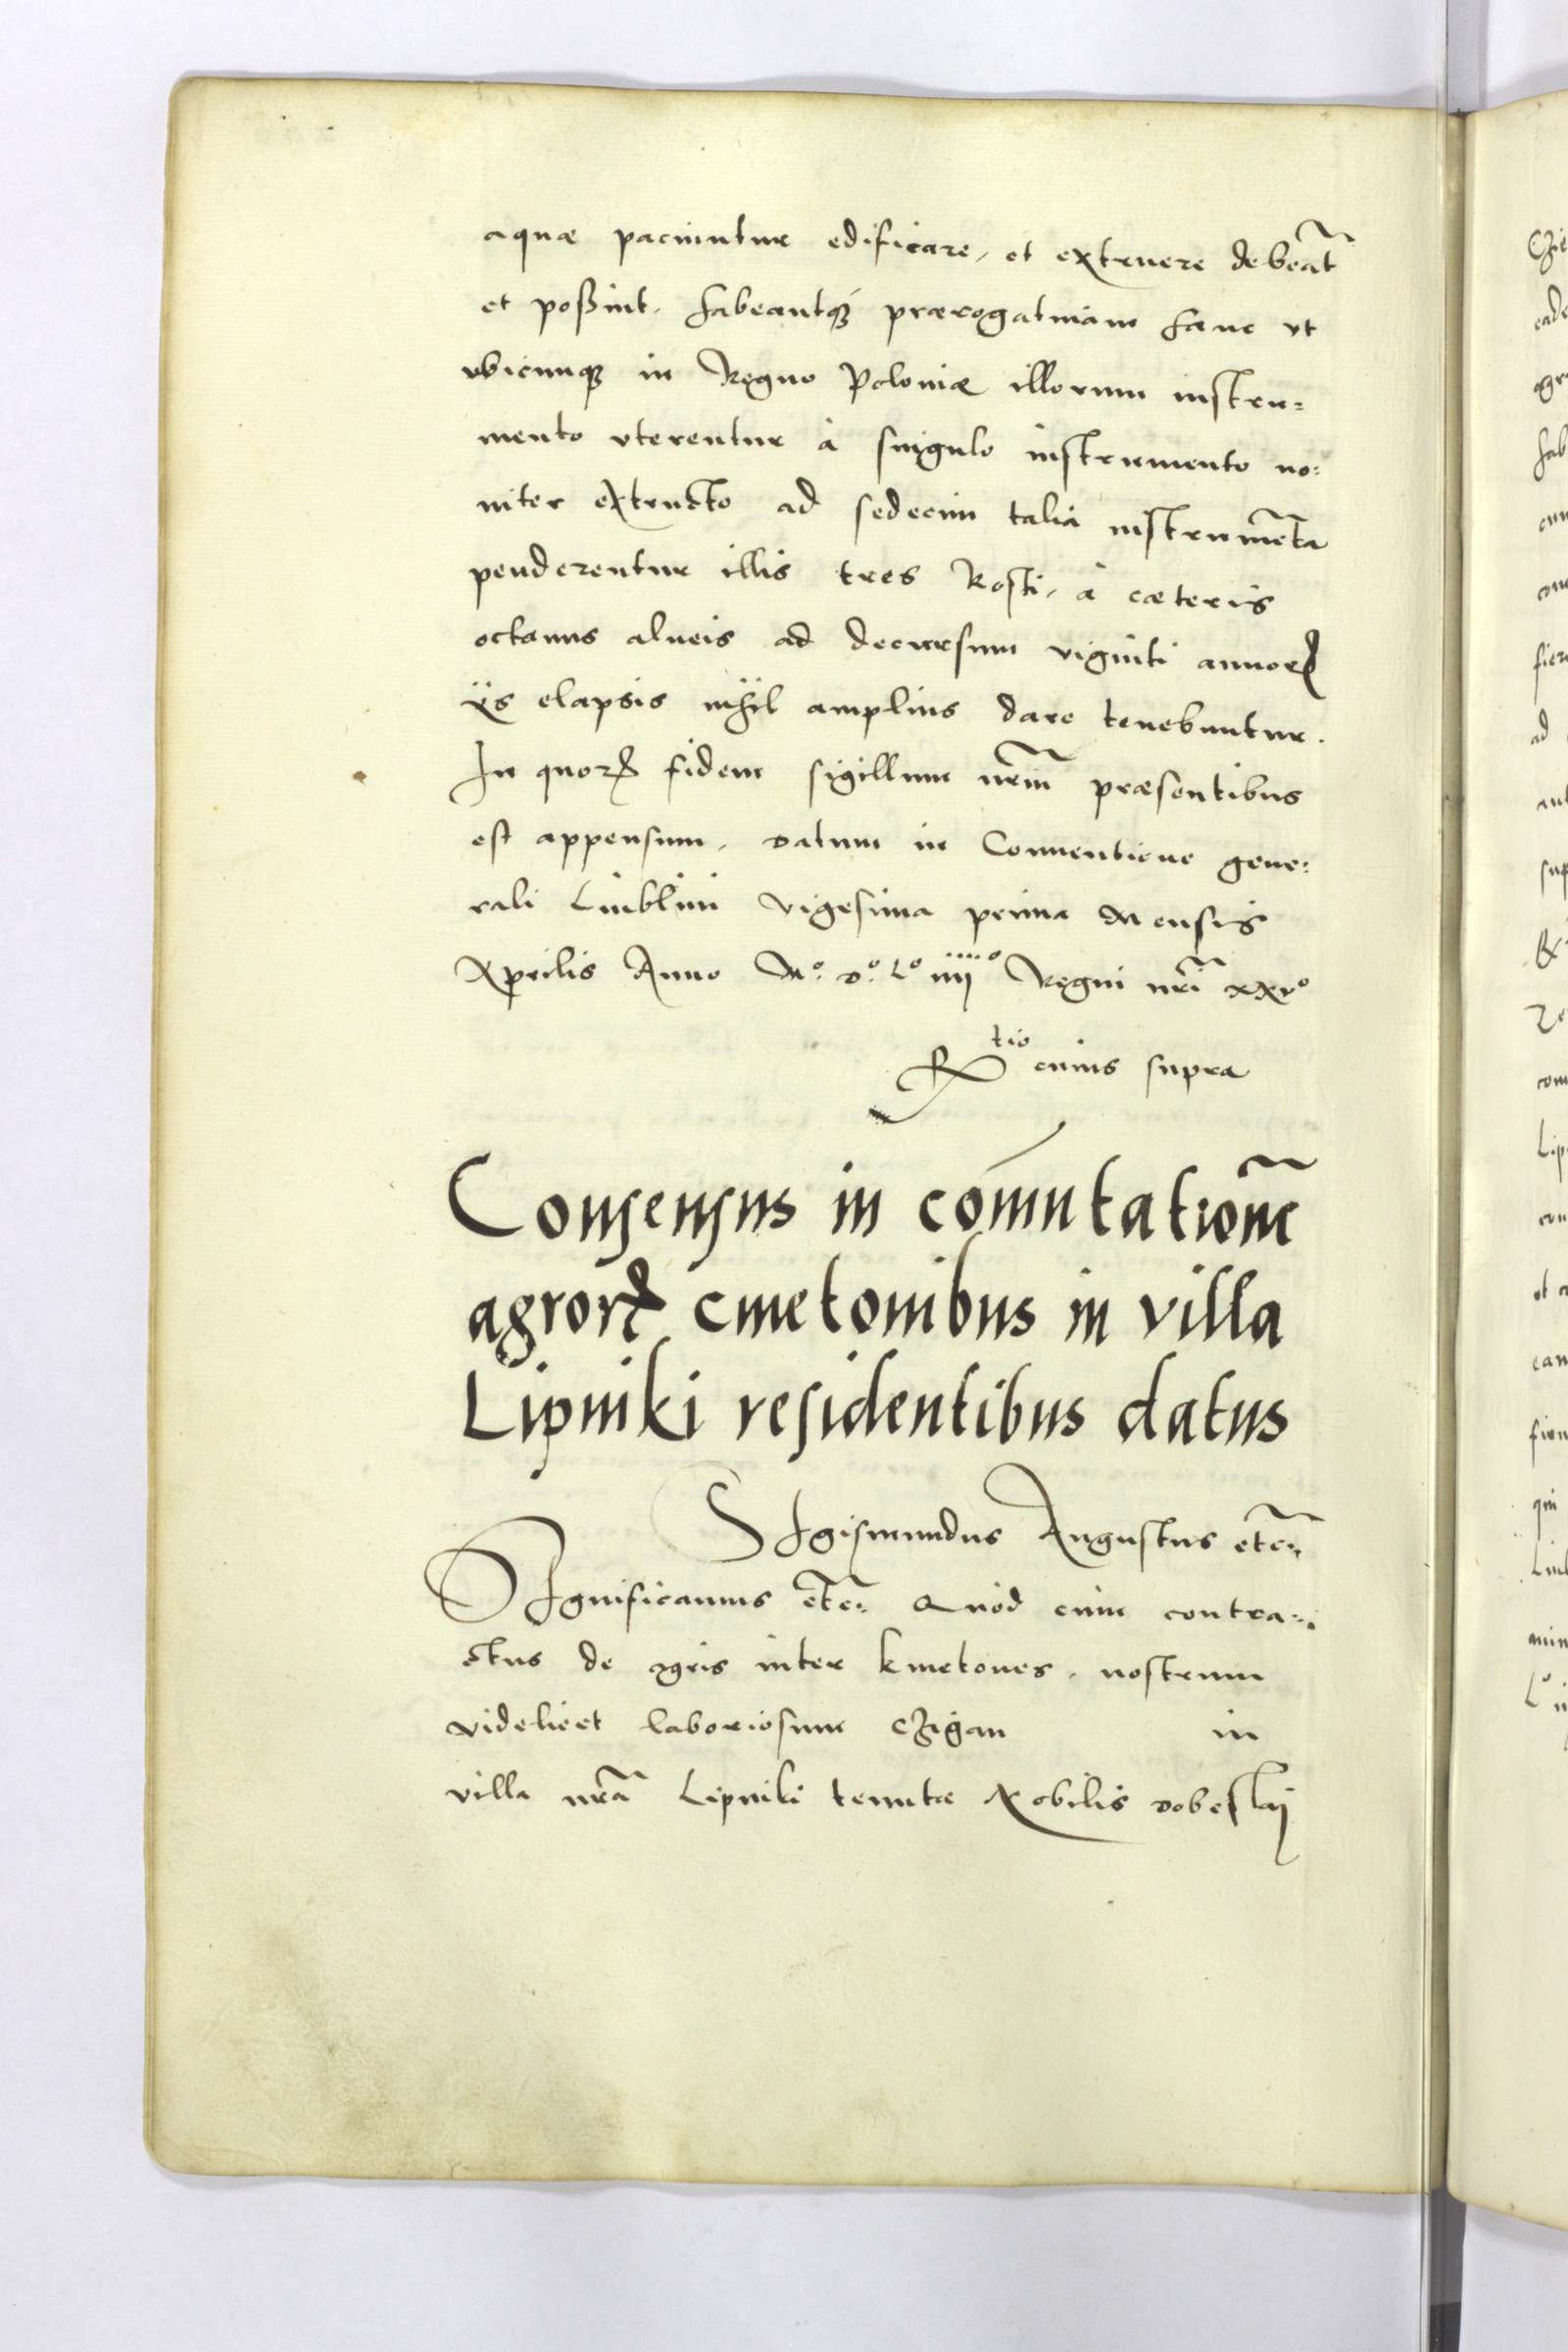 aquæ paciuntur edificare, et extruere debea͠t
et poßint. habeantq́ꝫ prærogatiuam hanc vt
vbicunqꝫ in Regno Poloniæ illorum instru=
mento vterentur à singulo instrumento no:
uiter extructo ad sedecim talia instrume͠ta
penderentur illis tres Rosti, à cæteris
octauus alueis ad decursum viginti annorꝝ
ÿs elapsis nihil amplius dare tenebuntur.
In quorꝝ fidem sigillum nr͠m præsentibus
est appensum. Datum in Conuentione gene:
rali Lublini Vigesima prima Mensis
Aprilis Anno Mº. Dº. Lº iiijº Regni nr͠i xxvº
Rtio cuius supra
Consensus in com̄utation͠e
agrorꝝ cmetonibus in villa
Lipniki residentibus datus
SIgismundus Augustus etc͠:
SIgnificamus et͠c: Quod cum contra=
ctus de agris inter kmetones. nostrum
videlicet laboriosum Czigan in
villa nr͠a Lipniki tenutæ Nobilis Dobeslaj